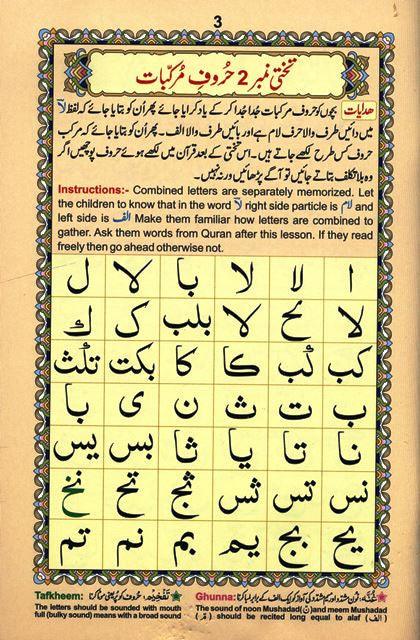 3
تختی نمبر 2 حُروفِ مُرکبّات
ھدایات بچوں کو حروف مرکبات جُدا جُدا کر کے یاد کرایا جائے پھر اُن کو بتایا جائے کہ لفظ لا
میں دائیں طرف والا حرف لام ہے اور بائیں طرف والا الف۔ پھر اُن کو بتایا جائے کہ مرکب
حروف کس طرح لکھے جاتے ہیں۔ اس تختی کے بعد قرآن میں لکھے ہوئے حروف پوچھیں اگر
وہ بلا تکلف بتاتے جائیں تو آگے پڑھائیں ورنہ نہیں۔
Instructions:- Combined letters are separately memorized. Let
the children to know that in the word لا right side particle is لام and
left side is الف Make them familiar how letters are combined to
gather. Ask them words from Quran after this lesson. If they read
freely then go ahead otherwise not.
ا لا لا با لا ل
لا لا بلب ک ك
کب کب کا کا بکت تلث
ب ت ث ن ی با
نا تا یا ثا بس یس
نس تس ثس ثج تح نخ
یح بج یم بم نم تم
Ghunna: غُنَّه: نون مشدّد اور میم مشدّد کی آواز کو ایک الف کے برابر لمبا کرنا
The sound of noon Mushadad(نّ) and meem Mushadad
(مّ) should be recited long equal to alaf (الف)
Tafkheem: تَفْخِیْم: حُروف کو پُر یعنی موٹا کرنا
The letters should be sounded with mouth
full (bulky sound) means with a broad sound